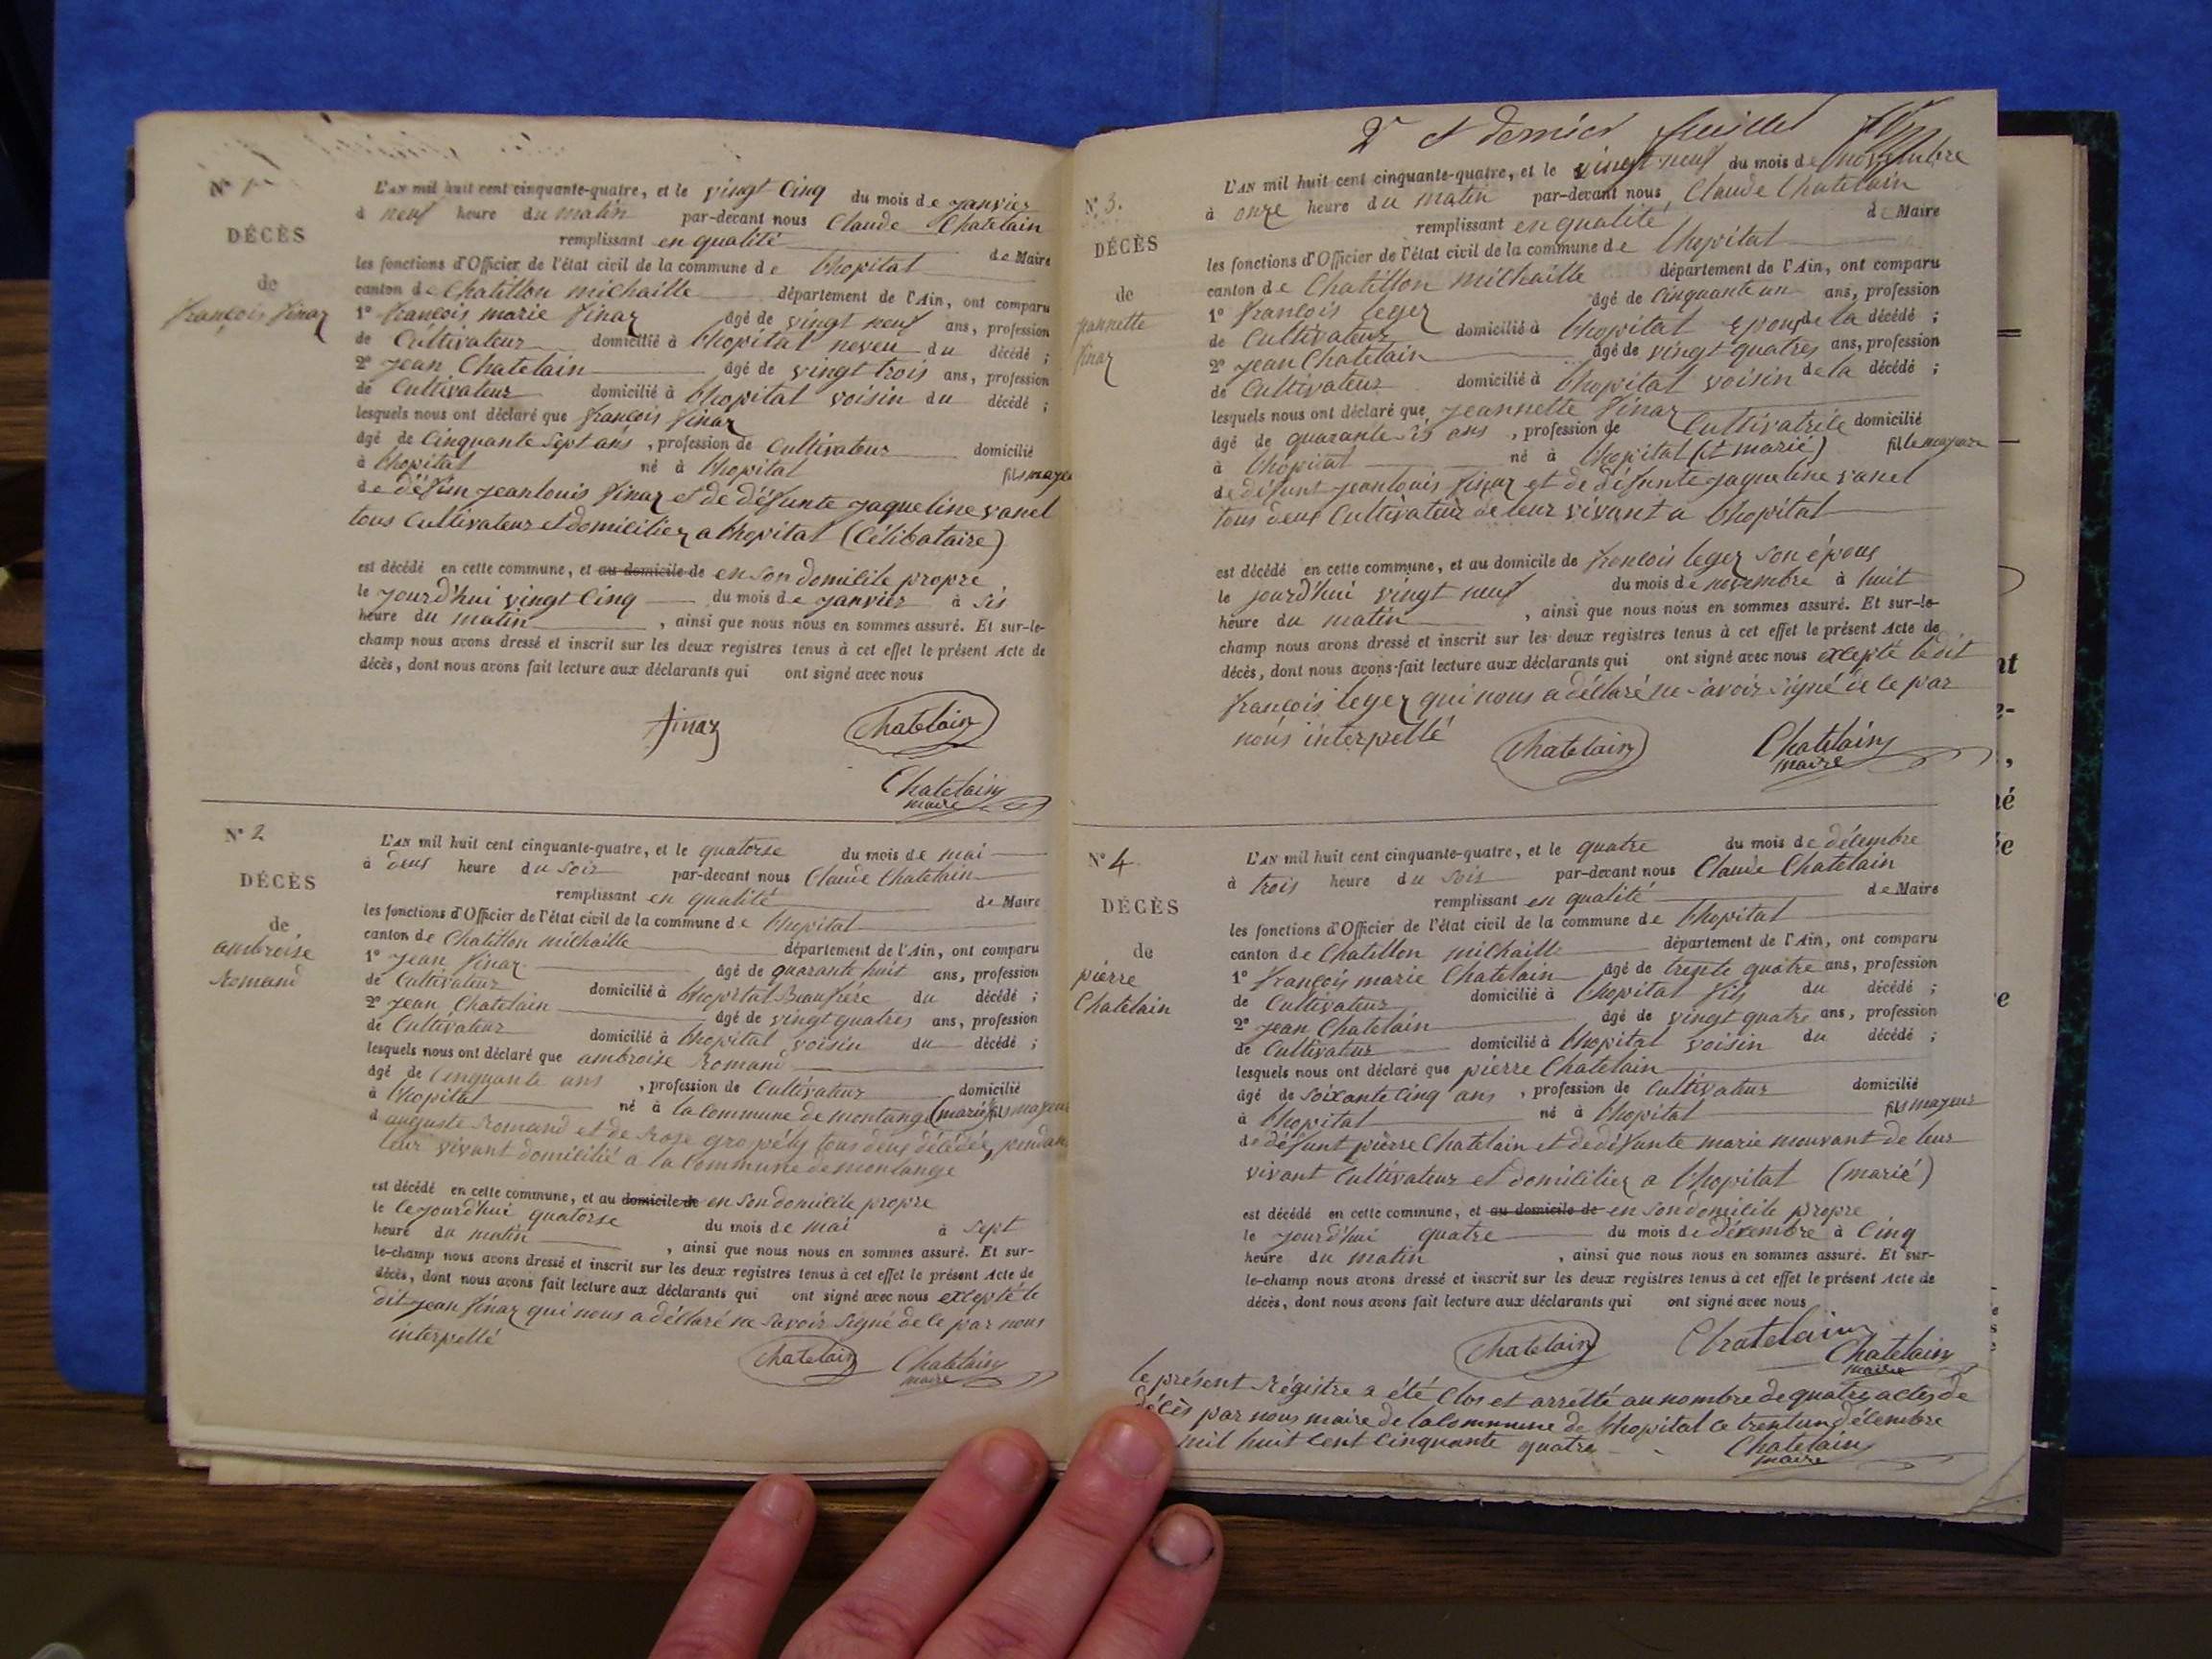 N° 1
DÉCÈS
de
françois finaz
L'AN mil huit cent cinquante-quatre, et le vingt cinq du mois de janvier
à neuf heure du matin par-devant nous Claude Chatelain
remplissant en qualité de Maire
les fonctions d'Officier de l'état civil de la commune de lhopital
canton de Chatillon michaille département de l'Ain, ont comparu
1° françois marie finaz âgé de vingt neuf ans, profession
de Cultivateur domicilié à lhopital neveu du décédé ;
2° jean Chatelain âgé de vingt trois ans, profession
de Cultivateur domicilié à lhopital voisin du décédé ;
lesquels nous ont déclaré que françois finaz
âgé de Cinquante sept ans , profession de Cultivateur domicilié
à lhopital né à lhopital fils
de défun jeanlouis finaz et de défunte jaqueline vanel
tous Cultivateur et domicilier a lhopital (Célibataire)
est décédé en cette commune, et au domicile de en son domicile propre
le jourd'hui vingt Cinq du mois de janvier à sis
heure du matin , ainsi que nous nous en sommes assuré. Et sur-le-
champ nous avons dressé et inscrit sur les deux registres tenus à cet effet le présent Acte de
décès, dont nous avons fait lecture aux déclarants qui ont signé avec nous
finaz Chatelain
Chatelain
maire
N° 2
DÉCÈS
de
ambroise
Romand
L'AN mil huit cent cinquante-quatre, et le quatorse du mois de mai
à deus heure du soir par-devant nous Claude Chatelain
remplissant en qualité de Maire
les fonctions d'Officier de l'état civil de la commune de lhopital
canton de Chatillon michaille département de l'Ain, ont comparu
1° jean finaz âgé de quarante huit ans, profession
de Cultivateur domicilié à lhopital Beaufrére du décédé ;
2° jean Chatelain âgé de vingt quatres ans, profession
de Cultivateur domicilié à lhopital voisin du décédé ;
lesquels nous ont déclaré que ambroise Romand
âgé de Cinquante ans , profession de Cultivateur domicilié
à lhopital né à la Commune de montange (marié) fils mayeur
d auguste Romand et de Rose tous deus décédée, pendan
leur vivant domicilié a la Commune de montange
est décédé en cette commune, et au domicile de en son domicile propre
le le jourd'hui quatorse du mois de mai à sept
heure du matin , ainsi que nous nous en sommes assuré. Et sur-
le-champ nous avons dressé et inscrit sur les deux registres tenus à cet effet le présent Acte de
décès, dont nous avons fait lecture aux déclarants qui ont signé avec nous excepté le
dit jean finaz qui nous a déclaré ne savoir signé de ce par nous
interpellé
Chatelain Chatelain
maire
2e et dernier feuillet
N° 3.
DÉCÈS
de
jannette
finaz
L'AN mil huit cent cinquante-quatre, et le vingt neuf du mois de novembre
à onze heure du matin par-devant nous Claude Chatelain
remplissant en qualité de Maire
les fonctions d'Officier de l'état civil de la commune de lhopital
canton de Chatillon michaille département de l'Ain, ont comparu
1° françois leger âgé de Cinquante un ans, profession
de Cultivateur domicilié à lhopital Epous de la décédé ;
2° jean Chatelain âgé de vingt quatres ans, profession
de Cultivateur domicilié à lhopital voisin de la décédé ;
lesquels nous ont déclaré que jeannette finaz
âgé de quarante sis ans , profession de Cultivatrice domicilié
à lhopital né à lhopital (et marié) fille mayeure
de défunt jeanlouis finaz et de défunte jaqueline vanel
tous deus Cultivateur de leur vivant a lhopital
est décédé en cette commune, et au domicile de françois leger son épous
le jourd'hui vingt neuf du mois de novembre à huit
heure du matin , ainsi que nous nous en sommes assuré. Et sur-le-
champ nous avons dressé et inscrit sur les deux registres tenus à cet effet le présent Acte de
décès, dont nous avons fait lecture aux déclarants qui ont signé avec nous excepté ledit
françois leger qui nous a déclaré ne savoir signé de ce par
nous interpellé
Chatelain Chatelain
maire
N° 4
DÉCÈS
de
pierre
Chatelain
L'AN mil huit cent cinquante-quatre, et le quatre du mois de décembre
à trois heure du soir par-devant nous Claude Chatelain
remplissant en qualité de Maire
les fonctions d'Officier de l'état civil de la commune de lhopital
canton de Chatillon michaille département de l'Ain, ont comparu
1° françois marie Chatelain âgé de trente quatre ans, profession
de Cultivateur domicilié à lhopital fils du décédé ;
2° jean Chatelain âgé de vingt quatre ans, profession
de Cultivateur domicilié à lhopital voisin du décédé ;
lesquels nous ont déclaré que pierre Chatelain
âgé de soixante Cinq ans , profession de Cultivateur domicilié
à lhopital né à lhopital fils mayeur
de défunt pierre Chatelain et de défunte marie mouvant de leur
vivant Cultivateur et domicilier a lhopital (marié)
est décédé en cette commune, et au domicile de en son domicile propre
le jourd'hui quatre du mois de décembre à Cinq
heure du matin , ainsi que nous nous en sommes assuré. Et sur-
le-champ nous avons dressé et inscrit sur les deux registres tenus à cet effet le présent Acte de
décès, dont nous avons fait lecture aux déclarants qui ont signé avec nous
Chatelain Chatelain
Chatelain
maire
le présent Régistre a été Clos et arretté au nombre de quatre actes de
décès par nous maire de la Commune de lhopital ce trentun décembre
mil huit cent cinquante quatre
Chatelain
maire